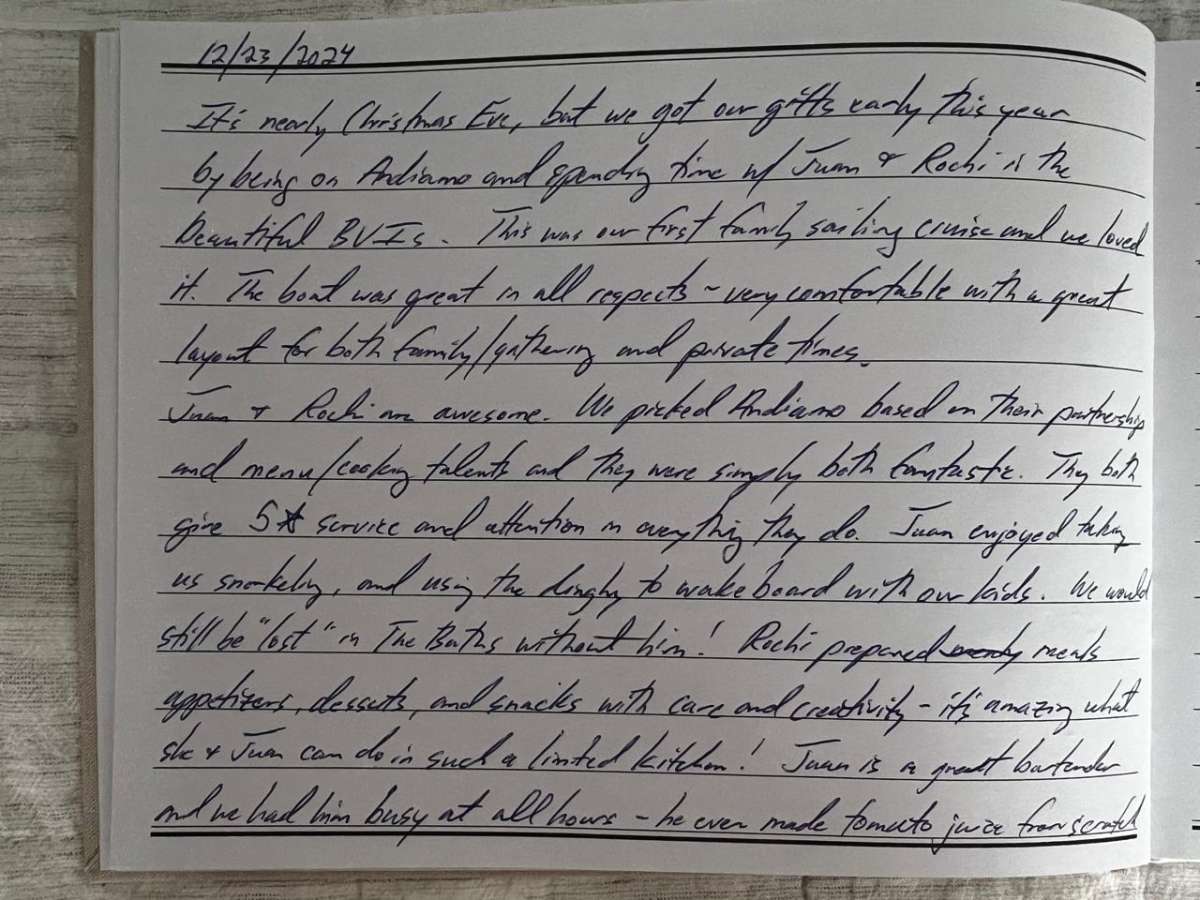 12/23/2024
It's nearly Christmas Eve, but we got our gifts early this year
by being on Andiamo and spending time w/ Juan & Rochi is the
beautiful BVIs. This was our first family sailing cruise and we loved
it. The boat was great in all respects - very comfortable with a great
layout for both family/gathering and private times.
Juan & Rochi are awesome. We picked Andiamo based on their partnership
and menu/cooking talents and they were simply both fantastic. They both
give 5☆ service and attention in everything they do. Juan enjoyed taking
us snorkeling, and using the dinghy to wakeboard with our kids. We would
still be "lost" in The Baths without him! Rochi prepared meals
appetizers, desserts, and snacks with care and creativity - it's amazing what
she & Juan can do in such a limited kitchen! Juan is a great bartender
and we had him busy at all hours - he even made tomato juice from scratch